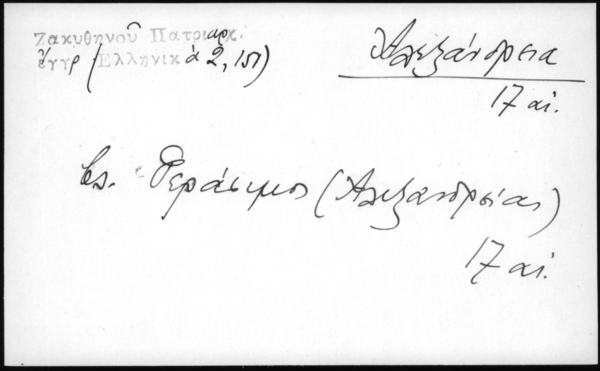 Ζακυθηνοῦ Πατριαρχ.
ἔγγρ (Ἑλληνικὰ 2, 151)
Ἀλεξάνδρεια
17 αἰ.
Βλ. Γεράσιμος (Ἀλεξανδρείας)
17 αἰ.